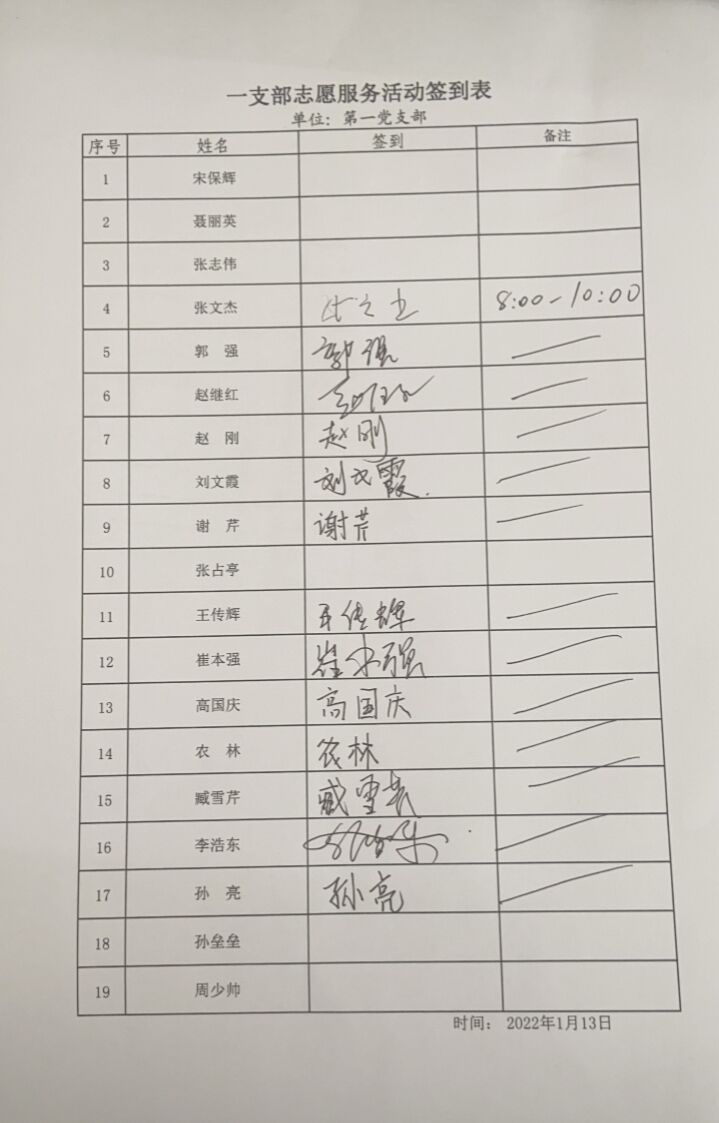 一支部志愿服务活动签到表
单位：第一党支部
序号 姓名 签到 备注
1 宋保辉
2 聂丽英
3 张志伟
4 张文杰 8:00-10:00
5 郭 强 郭强
6 赵继红
7 赵 刚 赵刚
8 刘文霞 刘文霞.
9 谢 芹 谢芹
10 张占亭
11 王传辉 王传辉
12 崔本强 崔本强
13 高国庆 高国庆
14 农 林 农林
15 臧雪芹 臧雪芹
16 李浩东
17 孙 亮 孙亮
18 孙垒垒
19 周少帅
时间： 2022年1月13日